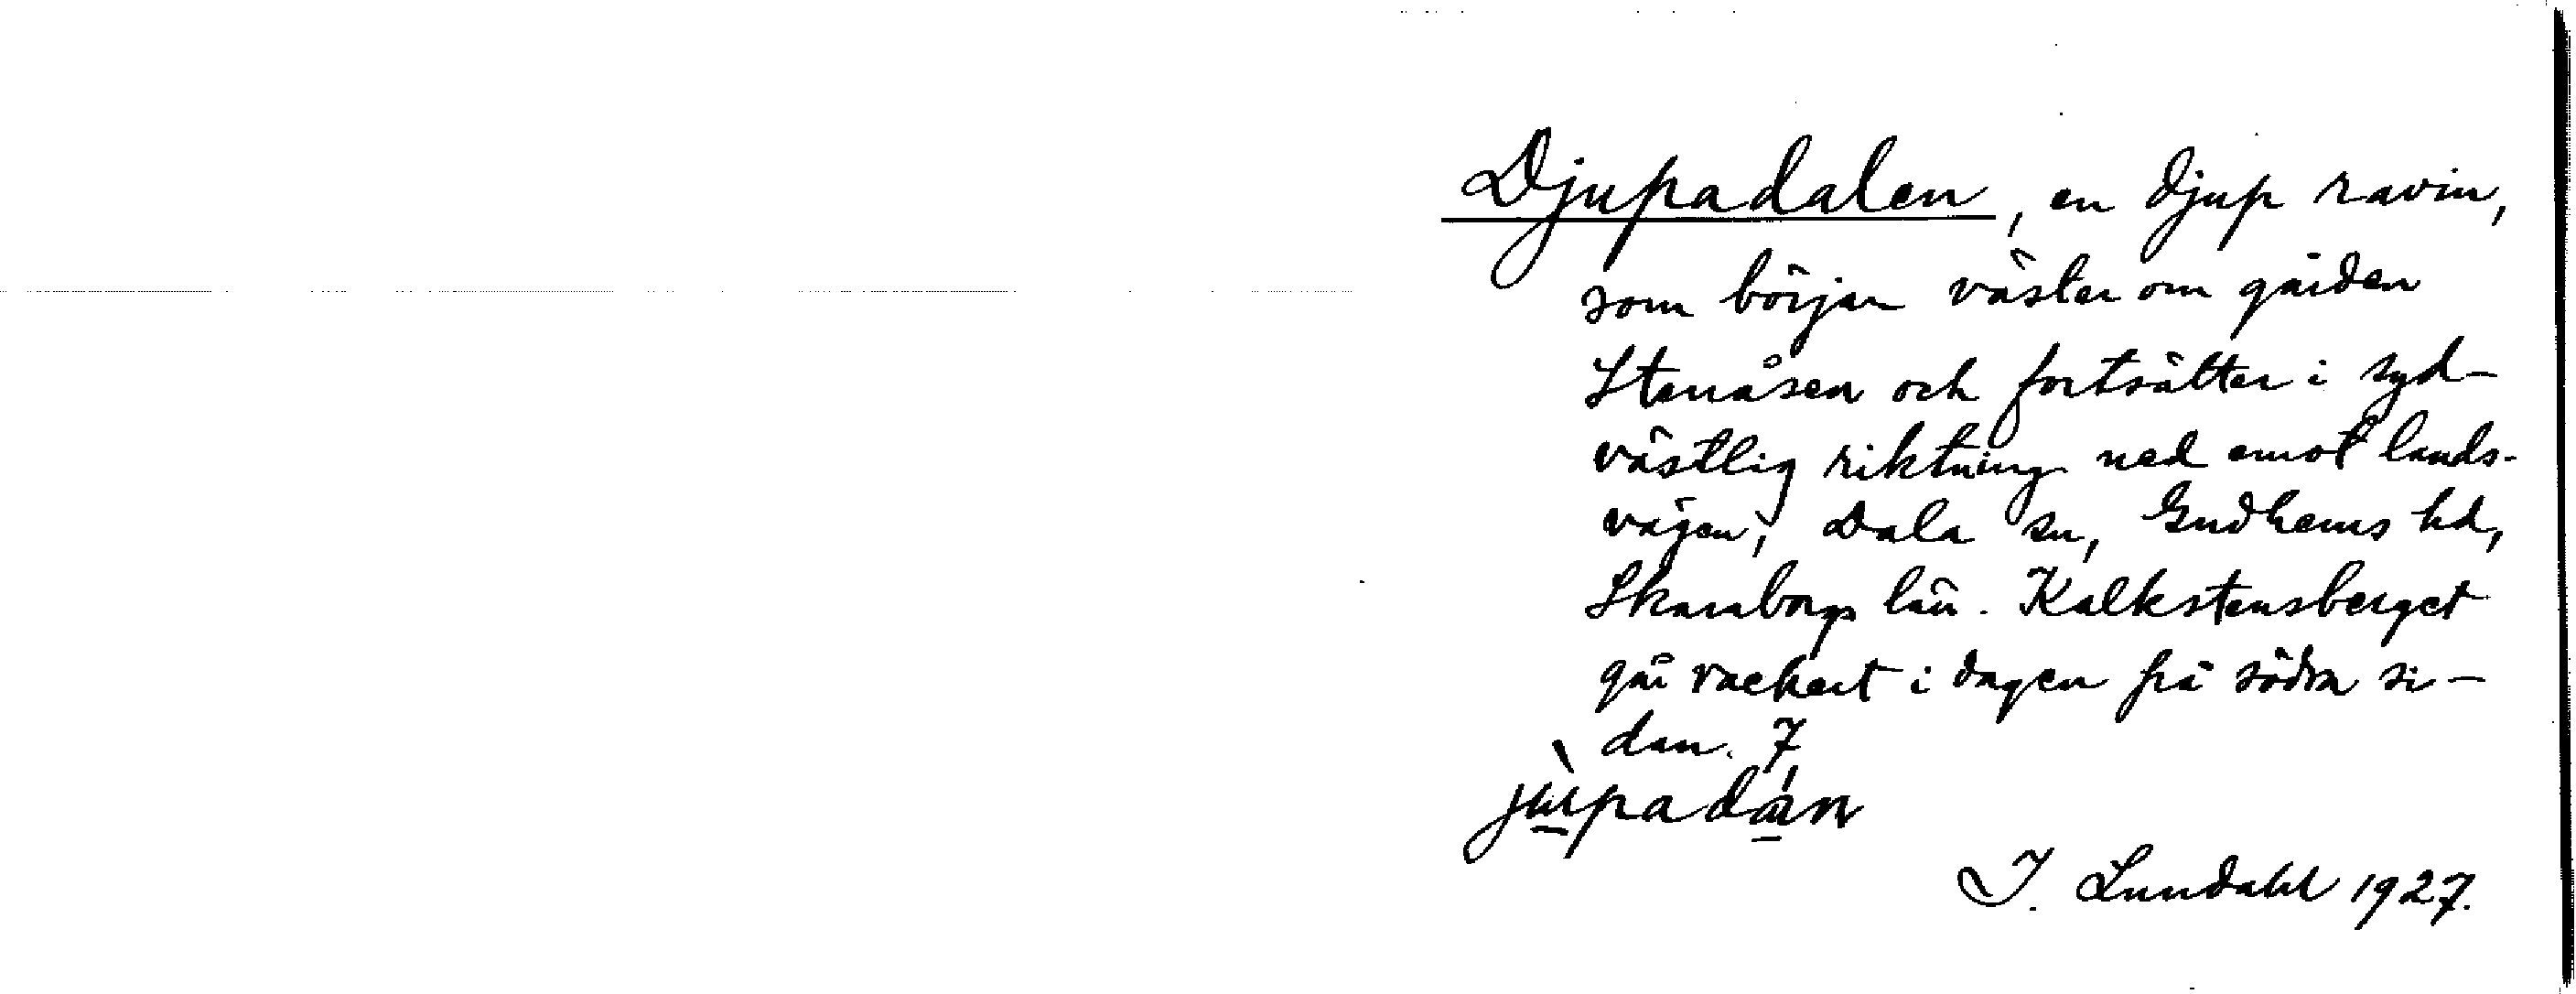 Djupadalen, en djup ravin,
som börjar väster om gården
Stenåsen och fortsätter i syd-
västlig riktning ned emot lands-
vägen, Dala sn, Gudhems hd,
Skaraborgs län. Kalkstensberget
går vackert i dagen på södra si-
dan. 7
jùpadán
I. Lundahl 1927.